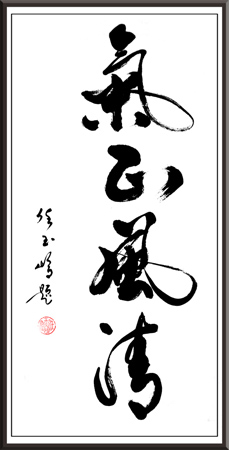 氣正風清
任玉嶺題